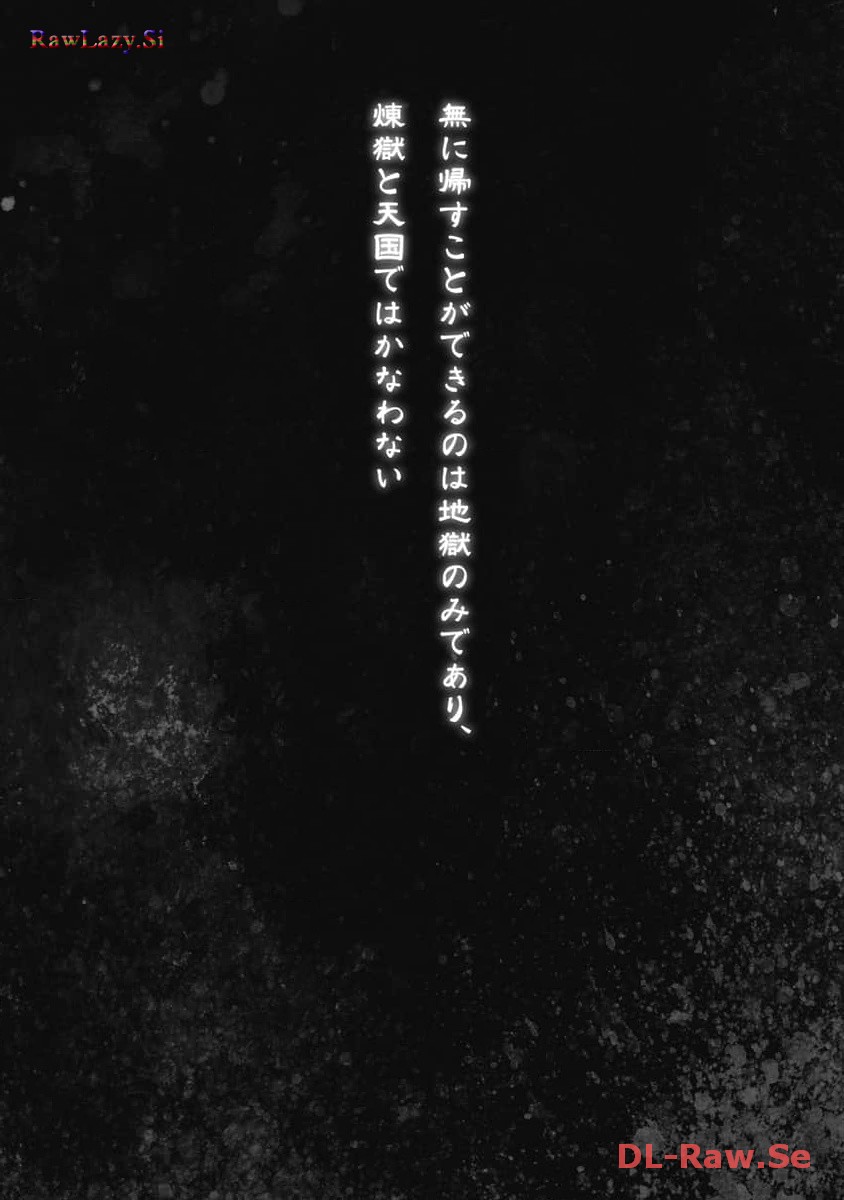 RawLazy.Si
無に帰すことができるのは地獄のみであり、
煉獄と天国ではかなわない
DL-Raw.Se